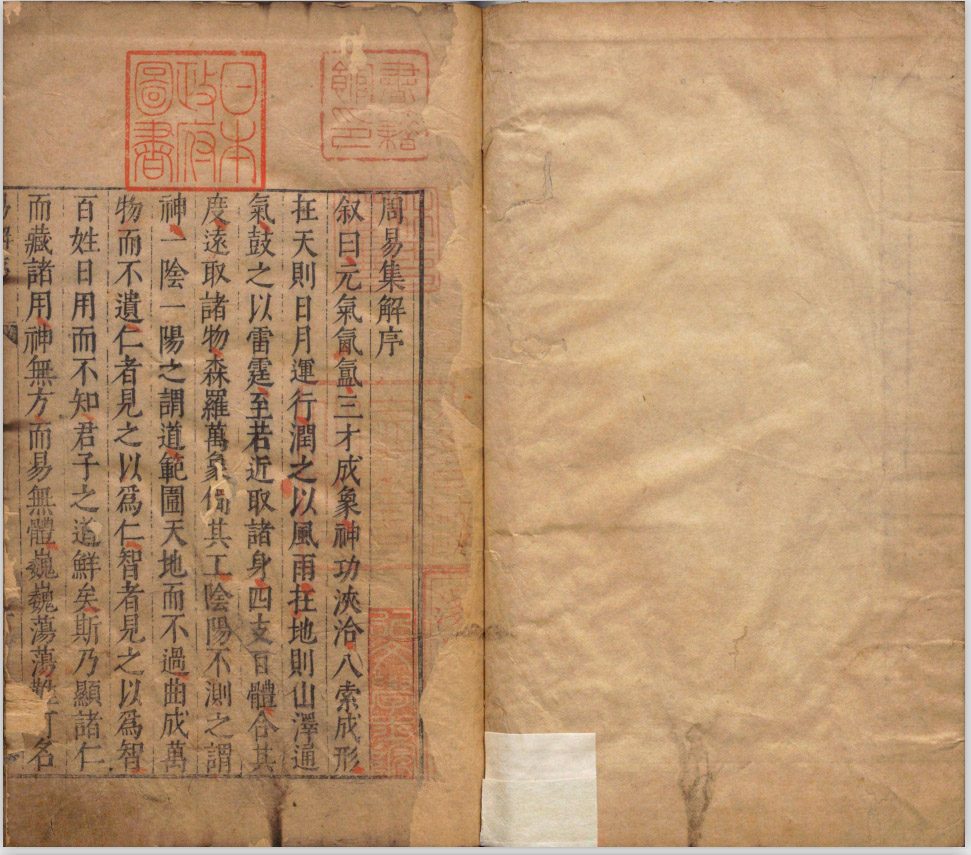 周易集解序
叙曰元氣氤氳三才成象神功浹洽八索成形
在天則日月運行潤之以風雨在地則山澤通
氣鼓之以雷霆至若近取諸身四支百體合其
度遠取諸物森羅萬象備其工陰陽不測之謂
神一陰一陽之謂道範圍天地而不過曲成萬
物而不遺仁者見之以爲仁智者見之以爲智
百姓日用而不知君子之道鮮矣斯乃顯諸仁
而藏諸用神無方而易無體巍巍蕩蕩難可名
日本政府圖書